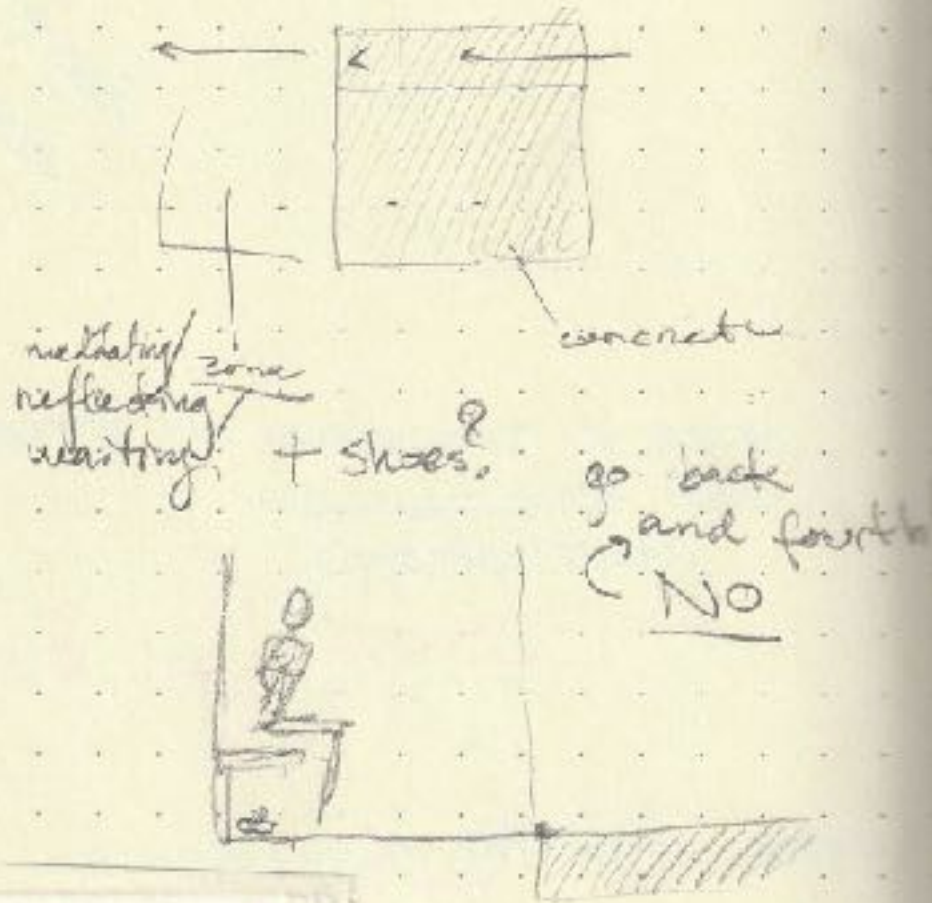 concrete
mediating/ zone
reflecting/
waiting
+ shoes?
go back
and fourth
NO